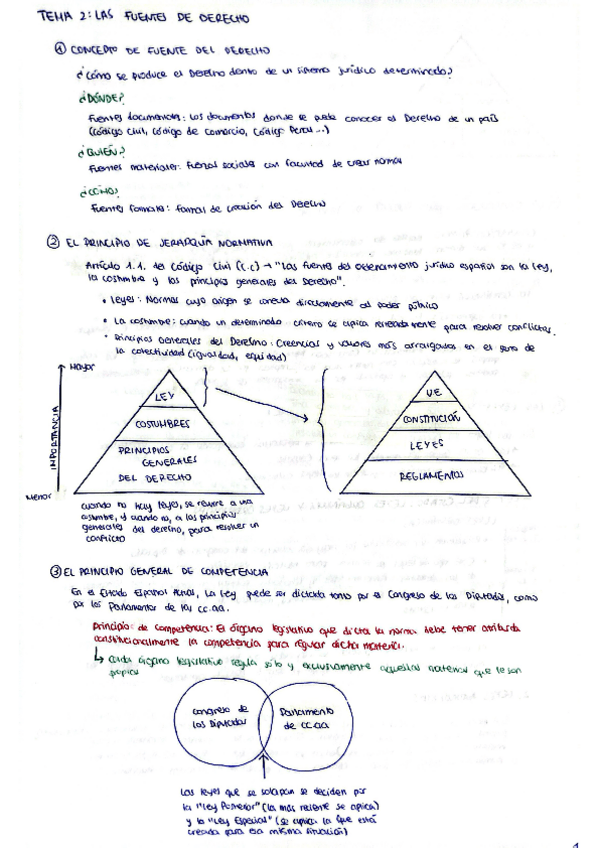 TEMA 2: LAS FUENTES DE DERECHO
① CONCEPTO DE FUENTE DEL DERECHO
¿Cómo se produce el Derecho dentro de un sistema jurídico determinado?
¿DÓNDE?
Fuentes documentales: Los documentos donde se puede conocer el Derecho de un país
(Código Civil, Código de Comercio, Código Penal...)
¿QUIÉN?
Fuentes materiales: fuerzas sociales con facultad de crear normas
¿CÓMO?
Fuentes formales: formas de creación del Derecho
② EL PRINCIPIO DE JERARQUÍA NORMATIVA
Artículo 1.1. del Código Civil (C.C) → "Las fuentes del ordenamiento jurídico español son la ley,
la costumbre y los principios generales del Derecho".
• Leyes: Normas cuyo origen se conecta directamente al poder público
• La costumbre: cuando un determinado criterio se aplica reiteradamente para resolver conflictos.
• Principios Generales del Derecho: Creencias y valores más arraigados en el seno de
la colectividad (igualdad, equidad)
Mayor
IMPORTANCIA
Menor
LEY
COSTUMBRES
PRINCIPIOS
GENERALES
DEL DERECHO
UE
CONSTITUCIÓN
LEYES
REGLAMENTOS
cuando no hay leyes, se recurre a una
costumbre, y cuando no, a los principios
generales del derecho, para resolver un
conflicto
③ EL PRINCIPIO GENERAL DE COMPETENCIA
En el Estado Español Actual, la Ley puede ser dictada tanto por el Congreso de los Diputados, como
por los Parlamentos de las CC.AA.
Principio de competencia: El órgano legislativo que dicta la norma debe tener atribuida
constitucionalmente la competencia para regular dicha materia.
↳ cada órgano legislativo regula sólo y exclusivamente aquellas materias que le son
propias
Congreso de
los Diputados
Parlamento
de CC.AA
Las leyes que se solapan se deciden por
la "Ley Posterior" (la más reciente se aplica)
y la "Ley Especial" (se aplica la que está
creada para esa misma situación)
1